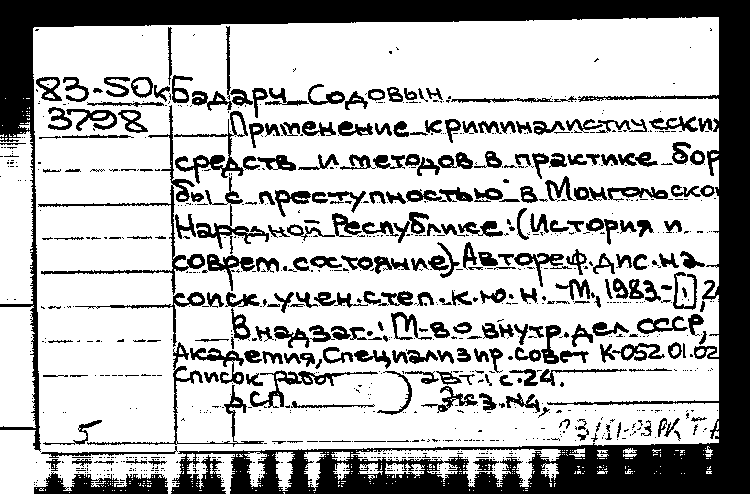 83-50к Бадарч Содовын.
3798 Применение криминалистических
средств и методов в практике бор
бы с преступностью в Монгольской
Народной Республике: (История и
соврем. состояние). Автореф. дис. на
соиск. учен. степ. к. ю. н. - М., 1983.-
В надзаг.: М-во внутр. дел СССР,
Академия, Специализир. совет К-052.01.02
Список работ авт.: с. 24.
ДСП. Экз. №4.
5